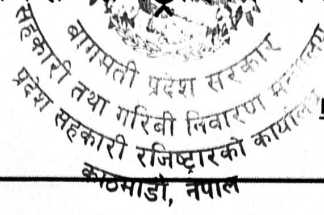 बागमती प्रदेश सरकार
सहकारी तथा गरिबी निवारण
प्रदेश सहकारी रजिष्ट्रारको
काठमाडौं, नेपाल